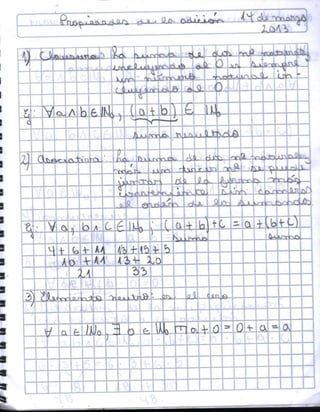 Propiedades de la adición 14 de marzo
2013
1) Clausura: La suma de dos nº naturales
incluyendo al 0 es siempre
un número natural in-
cluyendo al 0.
Ej: ∀ a ∧ b ∈ IN₀, (a + b) ∈ IN₀
suma resultado
2) Asociativa: La suma de dos nº naturales
más un tercer nº se puede
juntar de la forma más
conveniente sin cambiar
el orden de los sumandos
Ej: ∀ a, b ∧ c ∈ IN₀ ; (a + b) + c = a + (b + c)
suma suma
4 + 6 + 11 13 + 15 + 5
10 + 11 13 + 20
21 33
3) Elemento neutro: es el cero
∀ a ∈ IN₀, ∃ 0 ∈ IN₀ a + 0 = 0 + a = a